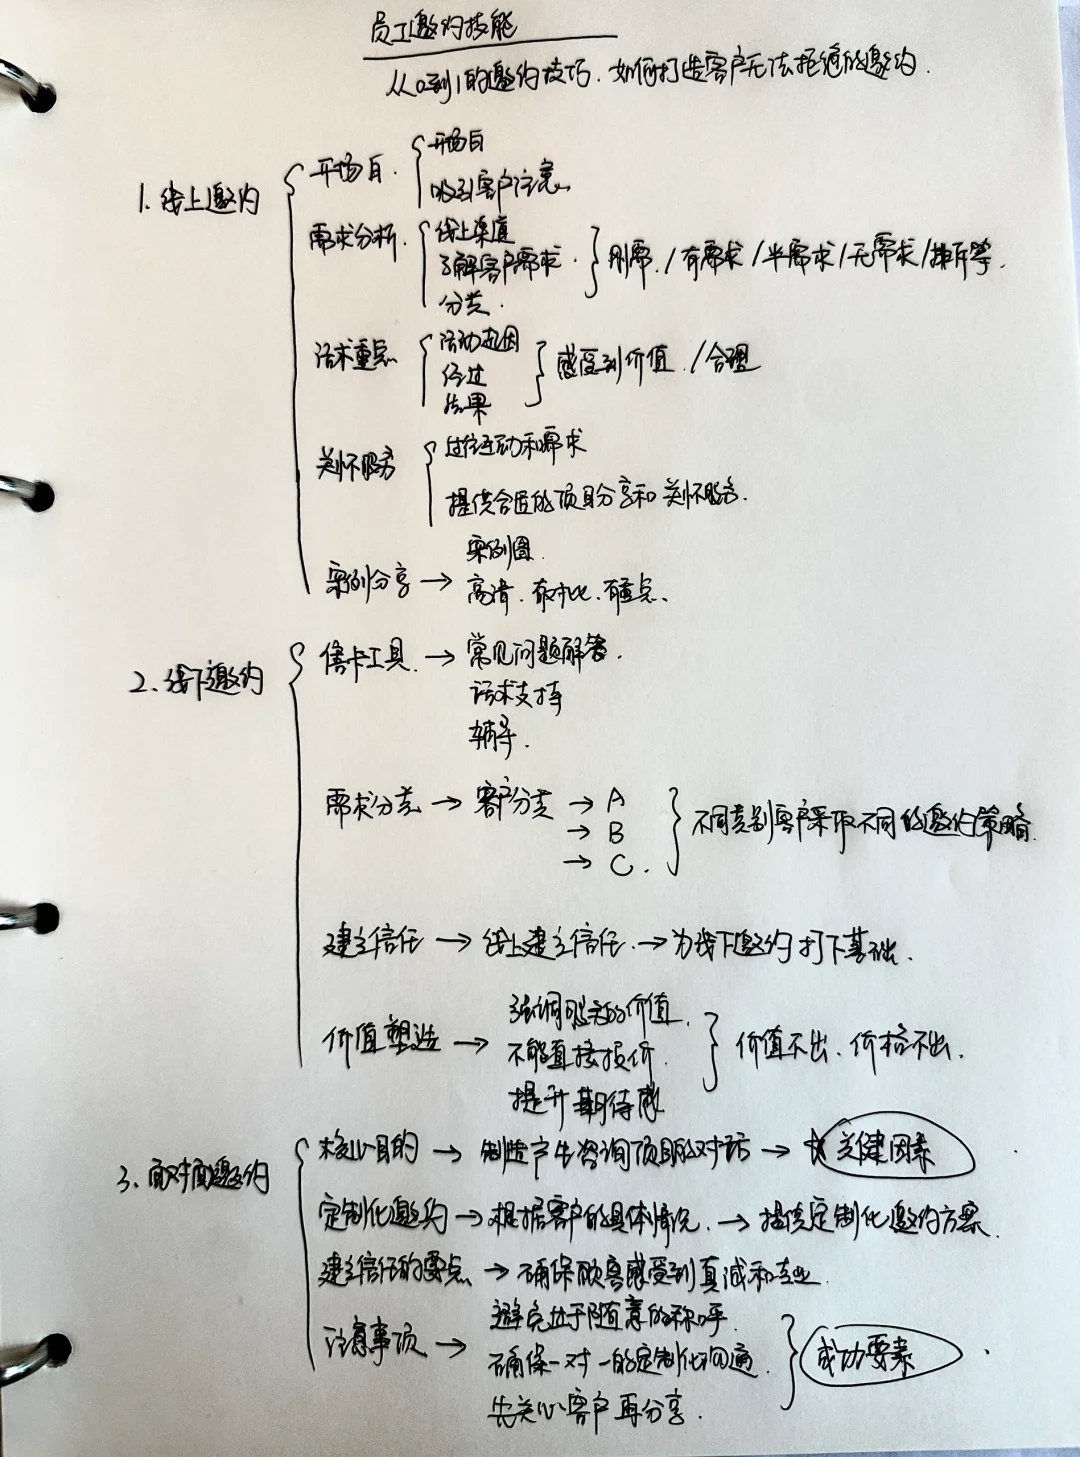 员工邀约技能
从0到1的邀约技巧.如何打造客户无法拒绝的邀约.
1.线上邀约
开场白.
开场白
吸引客户注意.
需求分析.
线上渠道
了解客户需求.
分类.
刚需./有需求/半需求/无需求/排斥等.
话术重点
活动起因
经过
结果
感受到价值./合理
关怀服务
过往互动和需求
提供合适的项目分享和关怀服务.
案例分享→
案例图.
高清.有对比.有重点、
2、线下邀约
售卡工具.→常见问题解答.
话术支持
辅导.
需求分类→客户分类→A
→B
→C.
不同类别客户采取不同的邀约策略.
建立信任→线上建立信任.→为线下邀约打下基础.
价值塑造→
强调的价值.
不能直接报价.
提升期待感
价值不出、价格不出.
3、面对面邀约
核心目的→制造产生咨询项目的对话→关键因素
定制化邀约→根据客户的具体情况.→提供定制化邀约方案.
建立信任的要点→确保顾客感受到真诚和专业.
注意事项→
避免过于随意的称呼.
确保一对一的定制化沟通.
先关心客户再分享.
成功要素